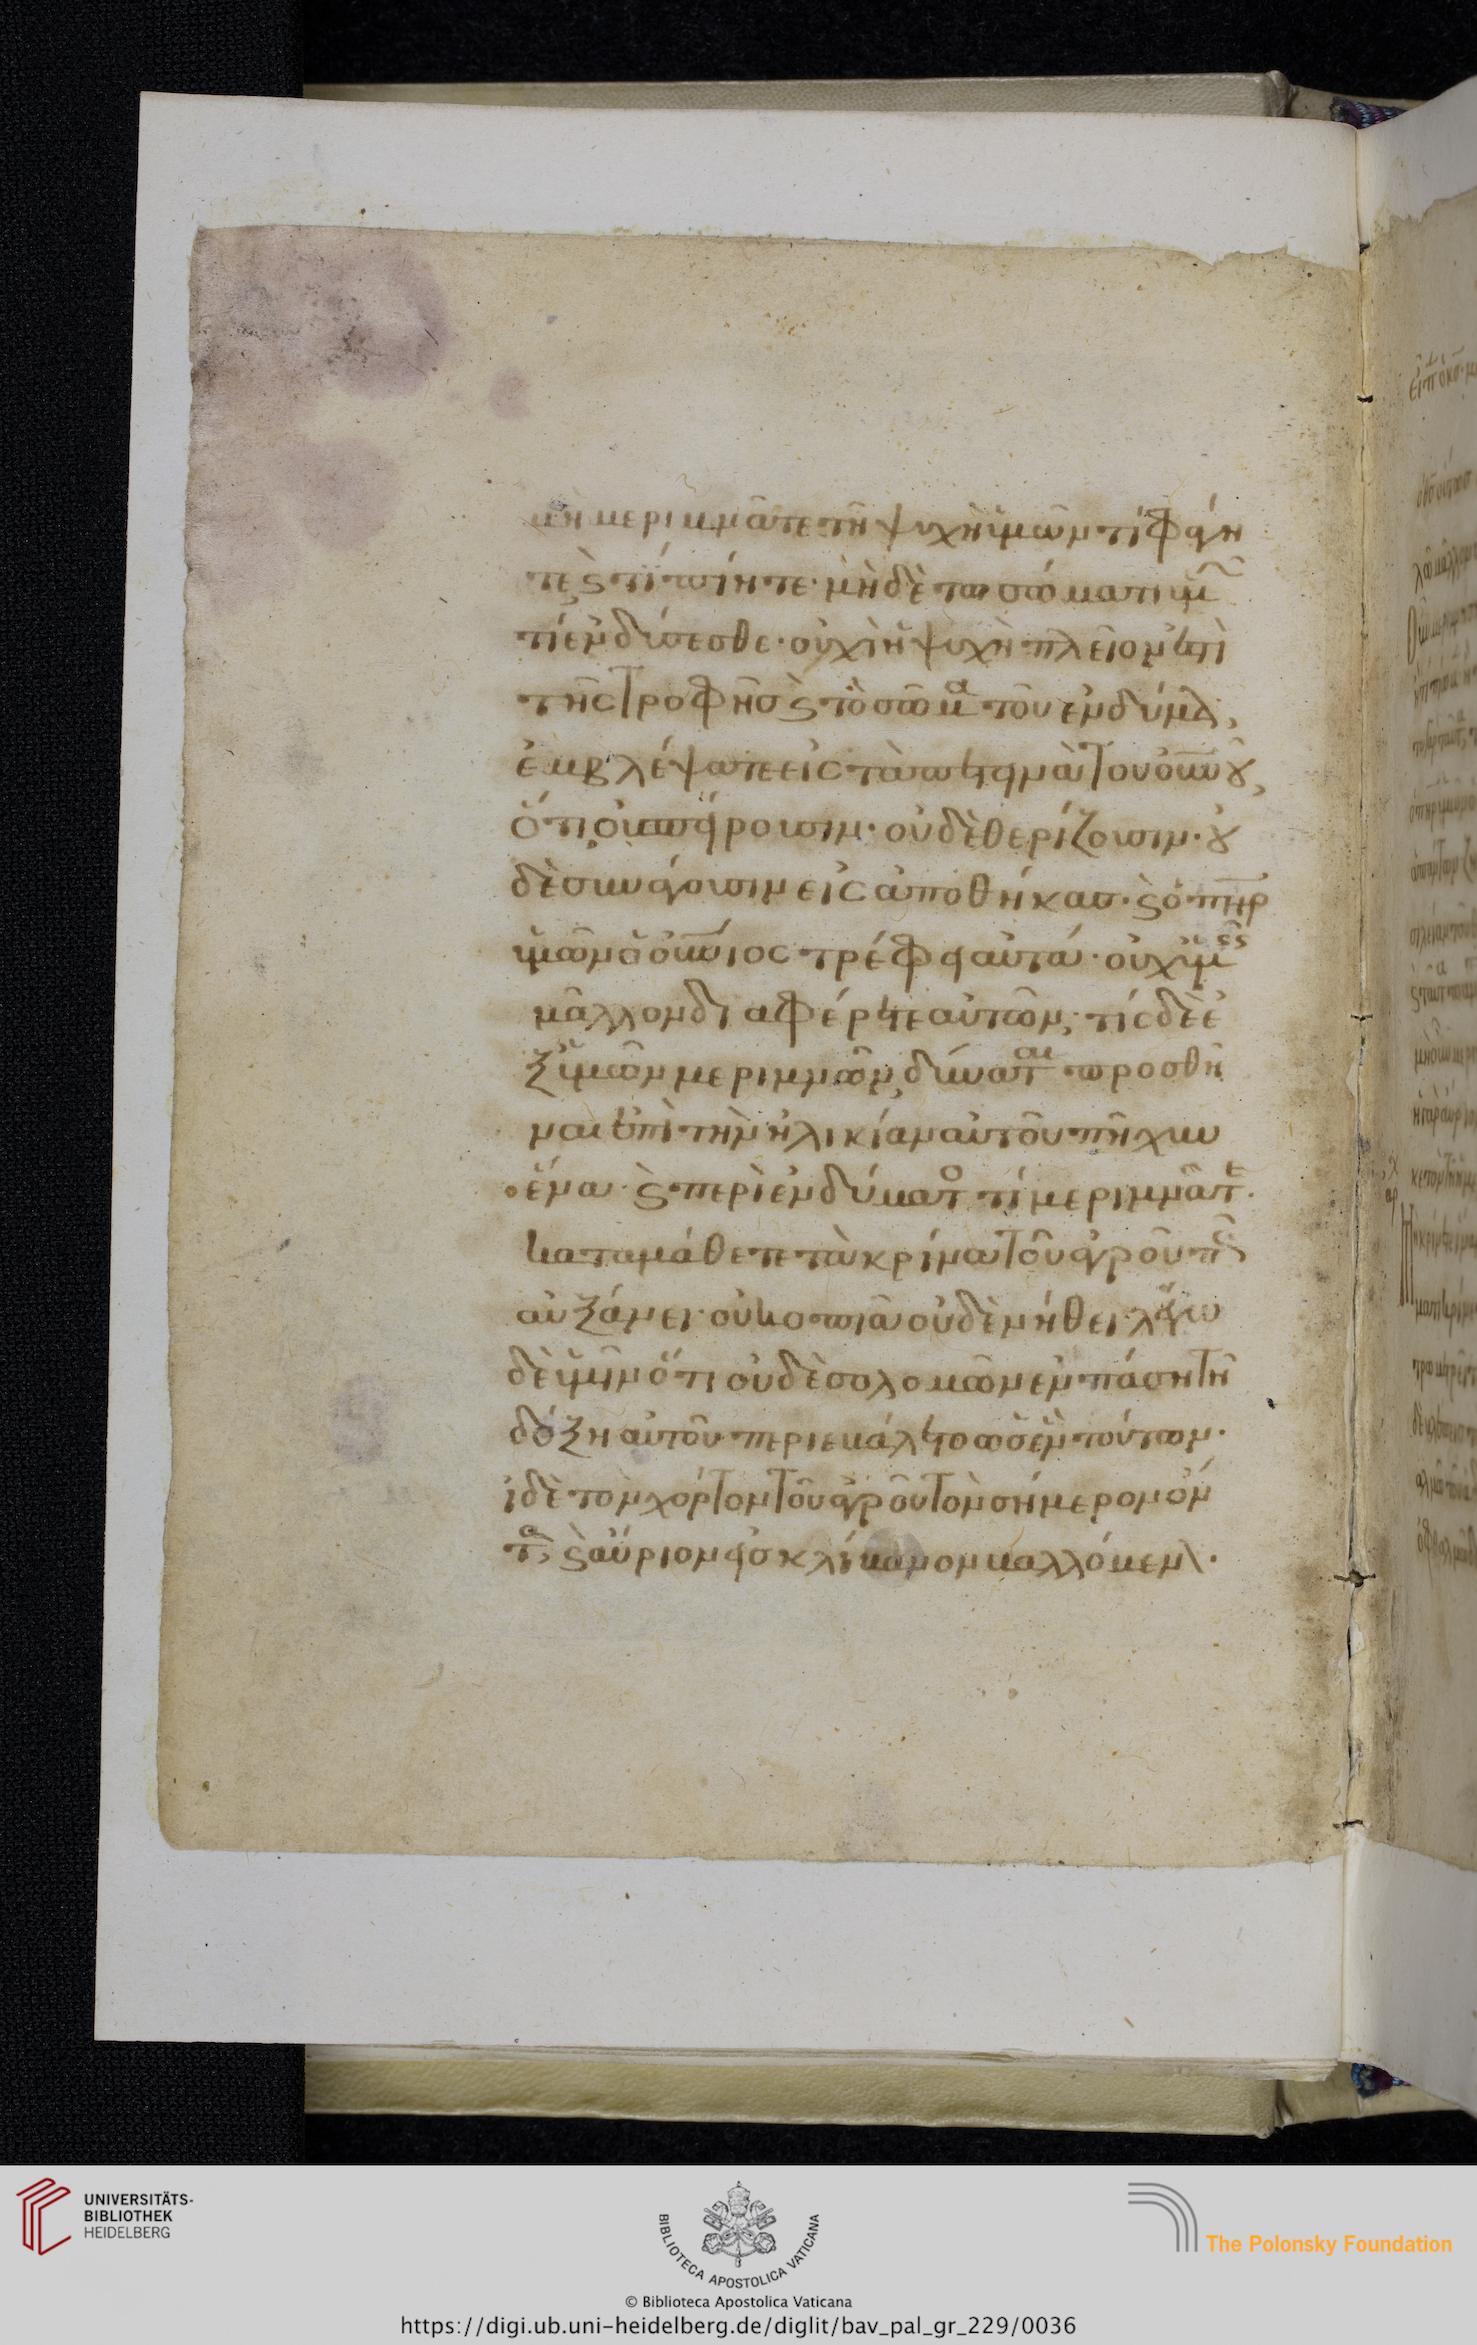 μὴ μεριμνᾶτε τῆ ψυχῆ ὑμῶν τί φάγη
τε ϗ τί πίητε· μὴδὲ τω σώματι ὑμ῀
τί ἐνδύσεσθε· οὐχὶ ἡ ψυχὴ πλεῖον ἐστὶ
τῆς τροφῆσ ϗ τὸ σῶμα τοῦ ἐνδύμα,
ἐμβλέψατε εἰς τὰ πετεινὰ του οὐνοῦ,
ὅτι οὐ σπείρουσιν· οὐδὲ θερίζουσιν· οὐ
δὲ συνάγουσιν εἰς ἀποθήκασ· ϗ ὁ πηρ
ὑμῶν ὁ οὐνιος τρέφει αὐτά· οὐχ ὑμεῖς
μᾶλλον διαφέρετε αὐτῶν; τίς δὲ ἐ
ξ ὑμῶν μεριμνῶν, δύναται προσθῆ
ναι ἐπὶ τὴν ἡλικίαν αὐτοῦ πῆχυν
ἕνα· ϗ περὶ ἐνδύματο τί μεριμνᾶτε·
καταμάθετε τὰ κρίνα τοῦ ἀγροῦ πῶς
αὐξάνει· οὐ κοπιᾶ οὐδὲ νήθει· λέγω
δὲ ὑμῖν ὅτι οὐδὲ σολομῶν ἐν πάσητῆ
δόξη αὐτοῦ περιεβάλετο ὡσ ἓν τούτων·
ἰδὲ τὸν χόρτον τοῦ ἀγροῦ τὸν σήμερον ὄν
τα, ϗ αὔριον εἰσ κλίβανον βαλλόμεν·
UNIVERSITÄTS-
BIBLIOTHEK
HEIDELBERG
BIBLIOTECA APOSTOLICA VATICANA
The Polonsky Foundation
© Biblioteca Apostolica Vaticana
https://digi.ub.uni-heidelberg.de/diglit/bav_pal_gr_229/0036